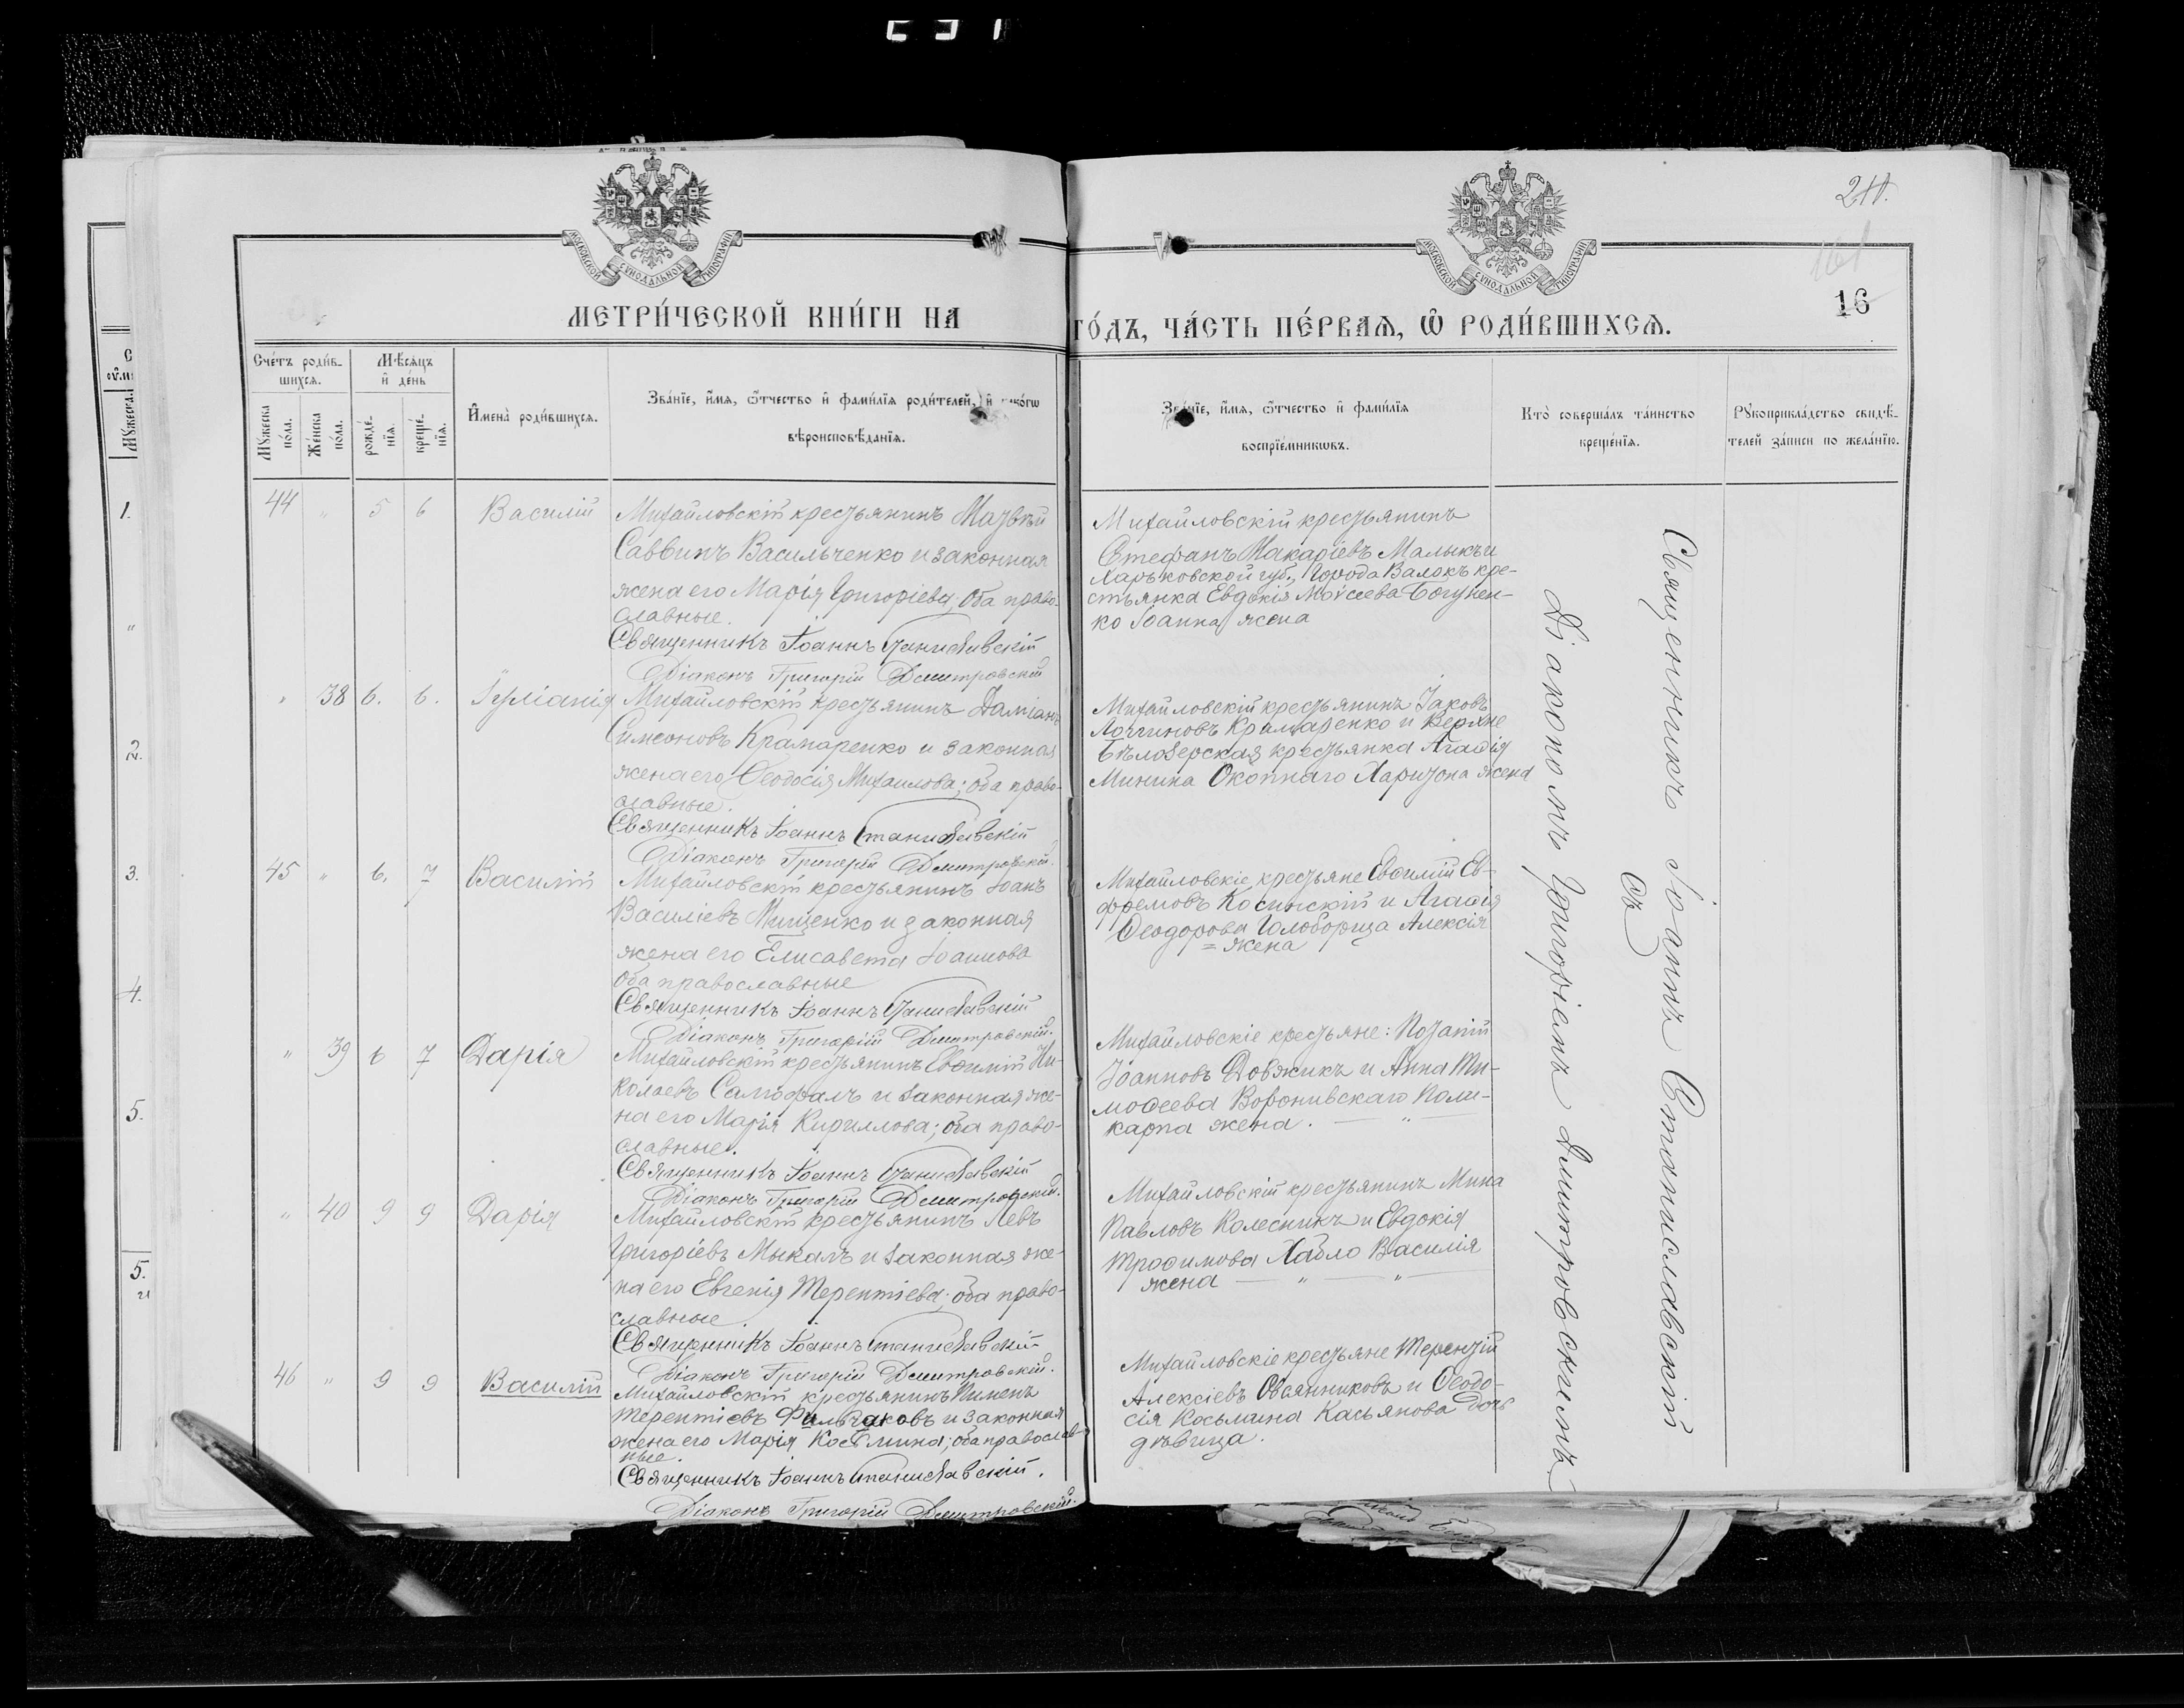 210.
161
16
МОСКОВСКОЙ СѴНОДАЛЬНОЙ ТИПОГРАФІИ
МОСКОВСКОЙ СѴНОДАЛЬНОЙ ТИПОГРАФІИ
МЕТРИ́ЧЕСКОЙ КНИ́ГИ НА
ГО́ДЪ, ЧА́СТЬ ПЕ́РВАѦ, Ѡ҆ РОДИ́ВШИХСѦ.
Счétъ роди́в-
шихсѧ.
Мѣ́сѧцъ
и҆ де́нь
Мꙋ́жеска
по́ла.
Же́нска
по́ла.
рожде́-
нїѧ.
креще́-
нїѧ.
И҆мена̀ роди́вшихсѧ.
Зва́нїе, и҆́мѧ, ѻ҆́тчество и҆ фами́лїѧ роди́телей, и҆ како́гѡ
вѣроисповѣ́данїѧ.
Зва́нїе, и҆́мѧ, ѻ҆́тчество и҆ фами́лїѧ
воспрїе́мникѡвъ.
Кто̀ соверша́лъ та́инство
креще́нїѧ.
Рꙋкоприкла́дство свидѣ́-
телей за́писи по жела́нїю.
44 " 5 6 Василій
Михайловскій крестьянинъ Матвѣй
Саввинъ Васильченко и законная
жена его Марія Григоріева; оба право-
славные.
Священникъ Іоаннъ Станиславскій
Діаконъ Григорій Дмитровскій
Михайловскій крестьянинъ
Стефанъ Макаріевъ Малыкъ и
Харьковской губ., Города Валокъ кре-
стьянка Евдокія Моѵсеева Богунен-
ко Іоанна жена
" 38 6. 6. Іуліанія
Михайловскій крестьянинъ Даміанъ
Симеоновъ Крамаренко и законная
жена его Ѳеодосія Михаилова; оба право-
славные.
Священникъ Іоаннъ Станиславскій
Діаконъ Григорій Дмитровскій.
Михайловскій крестьянинъ Іаковъ
Логгиновъ Крамаренко и Верхне
Бѣлозерская крестьянка Агаѳія
Минина Окопнаго Харитона жена
45 " 6. 7 Василій
Михайловскій крестьянинъ Іоанъ
Василіевъ Мищенко и законная
жена его Елисавета Іоаннова
оба православные
Священникъ Іоаннъ Станиславскій
Діаконъ Григорій Дмитровскій.
Михайловскіе крестьяне Евѳимій Ев-
фремовъ Косинскій и Агаѳія
Ѳеодорова Голоборща Алексія
= жена
" 39 6 7 Дарія
Михайловскій крестьянинъ Евѳимій Ни-
колаевъ Самофалъ и законная же-
на его Марія Кириллова; оба право-
славные.
Священникъ Іоаннъ Станиславскій
Діаконъ Григорій Дмитровскій.
Михайловскіе крестьяне: Потапій
Іоанновъ Довжикъ и Анна Ти-
моѳеева Воронивскаго Поли-
карпа жена. — " —
" 40 9 9 Дарія
Михайловскій крестьянинъ Левъ
Григоріевъ Мыкалъ и законная же-
на его Евгенія Терентіева; оба право-
славные.
Священникъ Іоаннъ Станиславскій
Діаконъ Григорій Дмитровскій.
Михайловскій крестьянинъ Мина
Павловъ Колесникъ и Евдокія
Трофимова Хайло Василія
жена — " — " —
46 " 9 9 Василій
Михайловскій крестьянинъ Пименъ
Терентіевъ Фильчаковъ и законная
жена его Марія Косьмина; оба православ-
ные.
Священникъ Іоаннъ Станиславскій.
Діаконъ Григорій Дмитровскій.
Михайловскіе крестьяне Терентій
Алексіевъ Овсянниковъ и Ѳеодо-
сія Косьмина Касьянова дочь
дѣвица.
Священникъ Іоаннъ Станиславскій
съ
Діакономъ Григоріемъ Дмитровскимъ
1.
"
2.
3.
4.
5.
5.